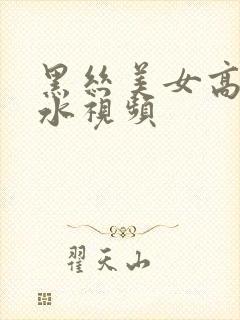 黑丝美女高
水視頻
翟天山